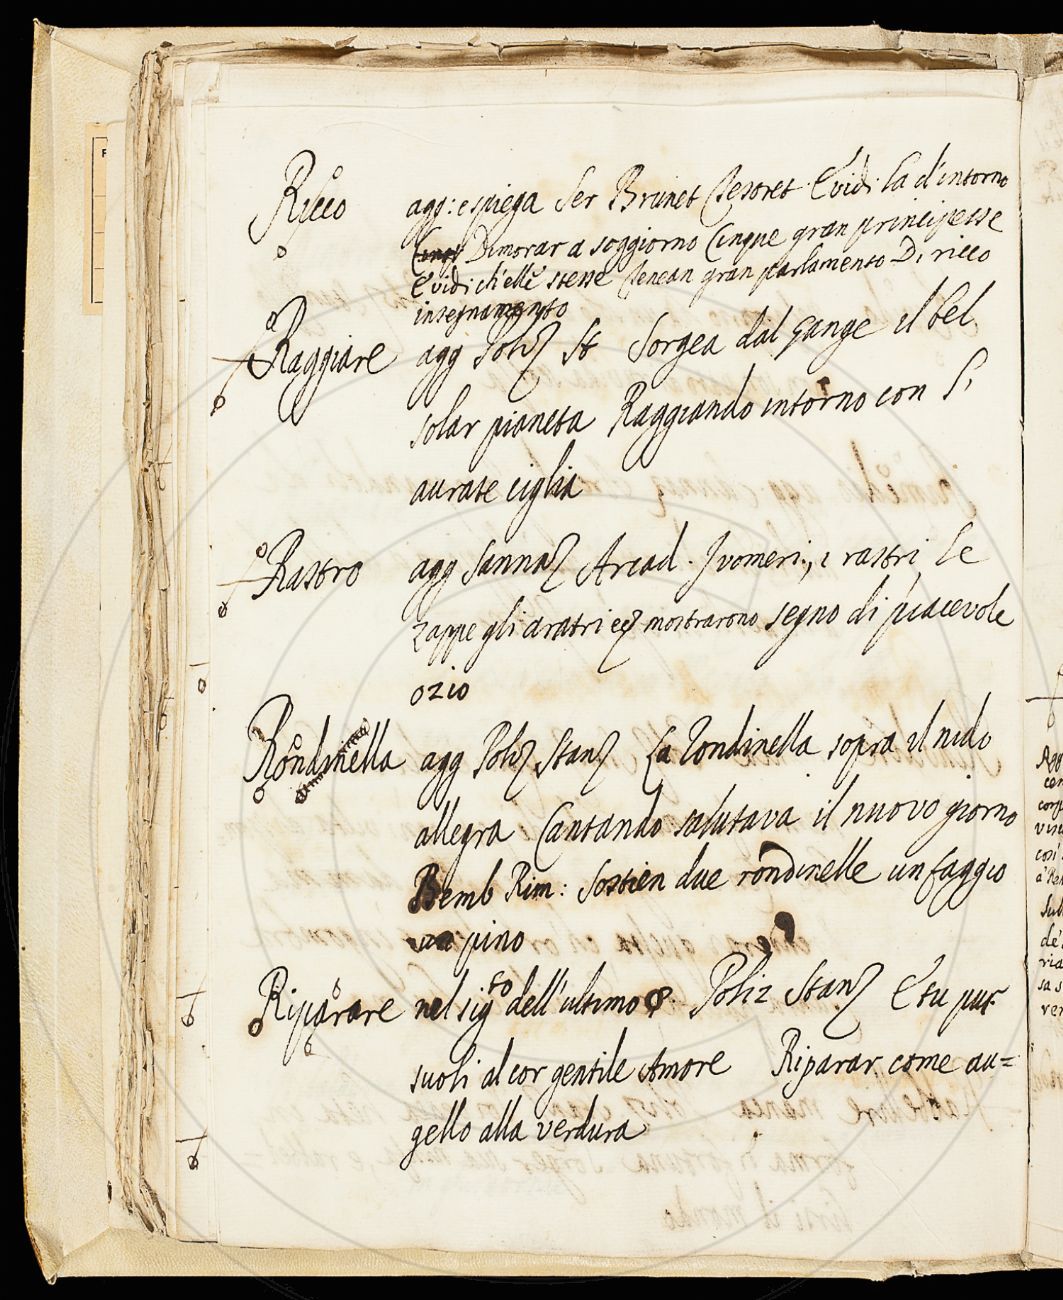 Ricco agg: e spiega Ser Brunet Tesoret. E vidi la d'intorno
Dimorar a soggiorno Cinque gran principesse
E vidi ch'elle stesse Tenean gran parlamento Di ricco
insegnamento
Raggiare agg Poliz St Sorgea dal gange il bel
solar pianeta Raggiando intorno con l'
aurate ciglia
Rastro agg Sannaz Arcad. I vomeri, i rastri le
zappe gli aratri ec mostrarono segno di piacevole
ozio
Rondinella agg Poliz Stanz La Rondinella sopra il nido
allegra Cantando salutava il nuovo giorno
Bemb Rim: Sostien due rondinelle un faggio
pino
Riparare nel sigto dell'ultimo §. Poliz Stanz E tu pur
suoli al cor gentile Amore Riparar come au=
gello alla verdura